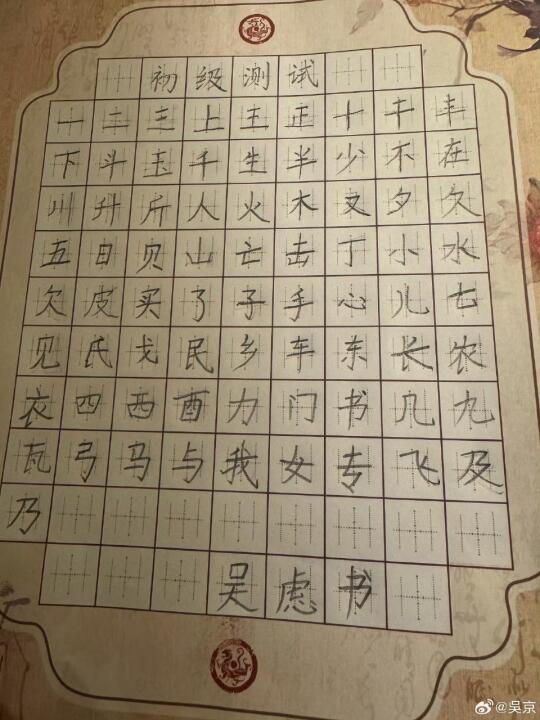 初级测试
一二三上王正十干丰
下斗玉千生半少不在
川升斤人火木又夕久
五日贝山亡击丁小水
欠皮买了子手心儿七
见氏戈民乡车东长农
衣四西酉力门书几九
瓦弓马与我女专飞及
乃
吴虑书
@吴京